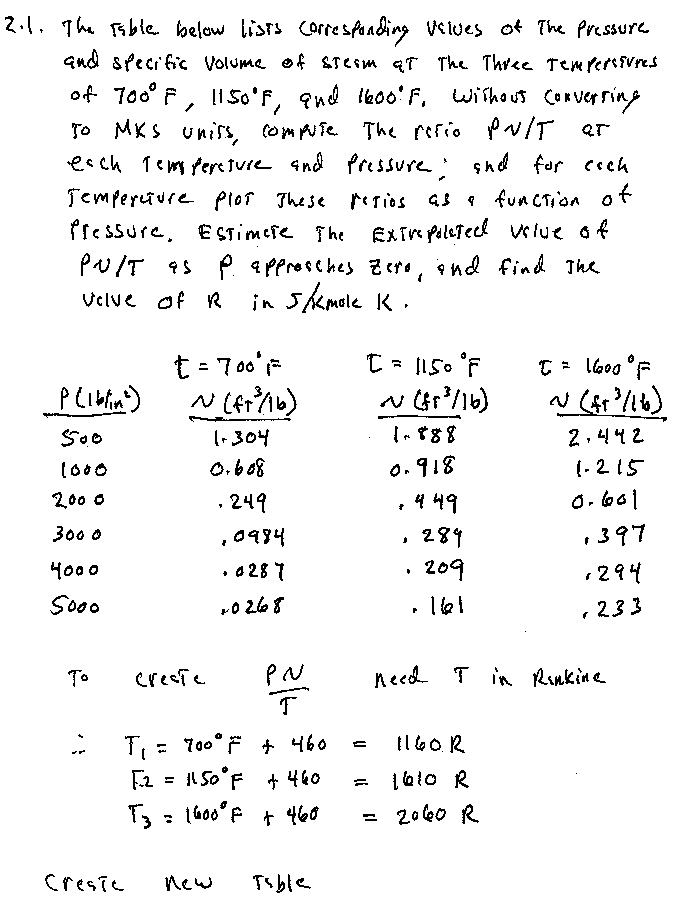 2.1. The Table below lists corresponding values of the Pressure
and specific volume of steam at The Three Temperatures
of 700°F, 1150°F, and 1600°F. Without converting
to MKS units, compute The ratio Pv/T at
each Temperature and Pressure; and for each
Temperature plot These ratios as a function of
Pressure. Estimate The Extrapolated value of
Pv/T as P approaches zero, and find The
value of R in J/kmole K.
t = 700°F t = 1150°F t = 1600°F
P (lb/in²) v (ft³/lb) v (ft³/lb) v (ft³/lb)
500 1.304 1.888 2.442
1000 0.608 0.918 1.215
2000 .249 .449 0.601
3000 .0984 .289 .397
4000 .0287 .209 .294
5000 .0268 .161 .233
To create Pv/T need T in Rankine
∴ T₁ = 700°F + 460 = 1160 R
T2 = 1150°F + 460 = 1610 R
T₃ = 1600°F + 460 = 2060 R
Create New Table